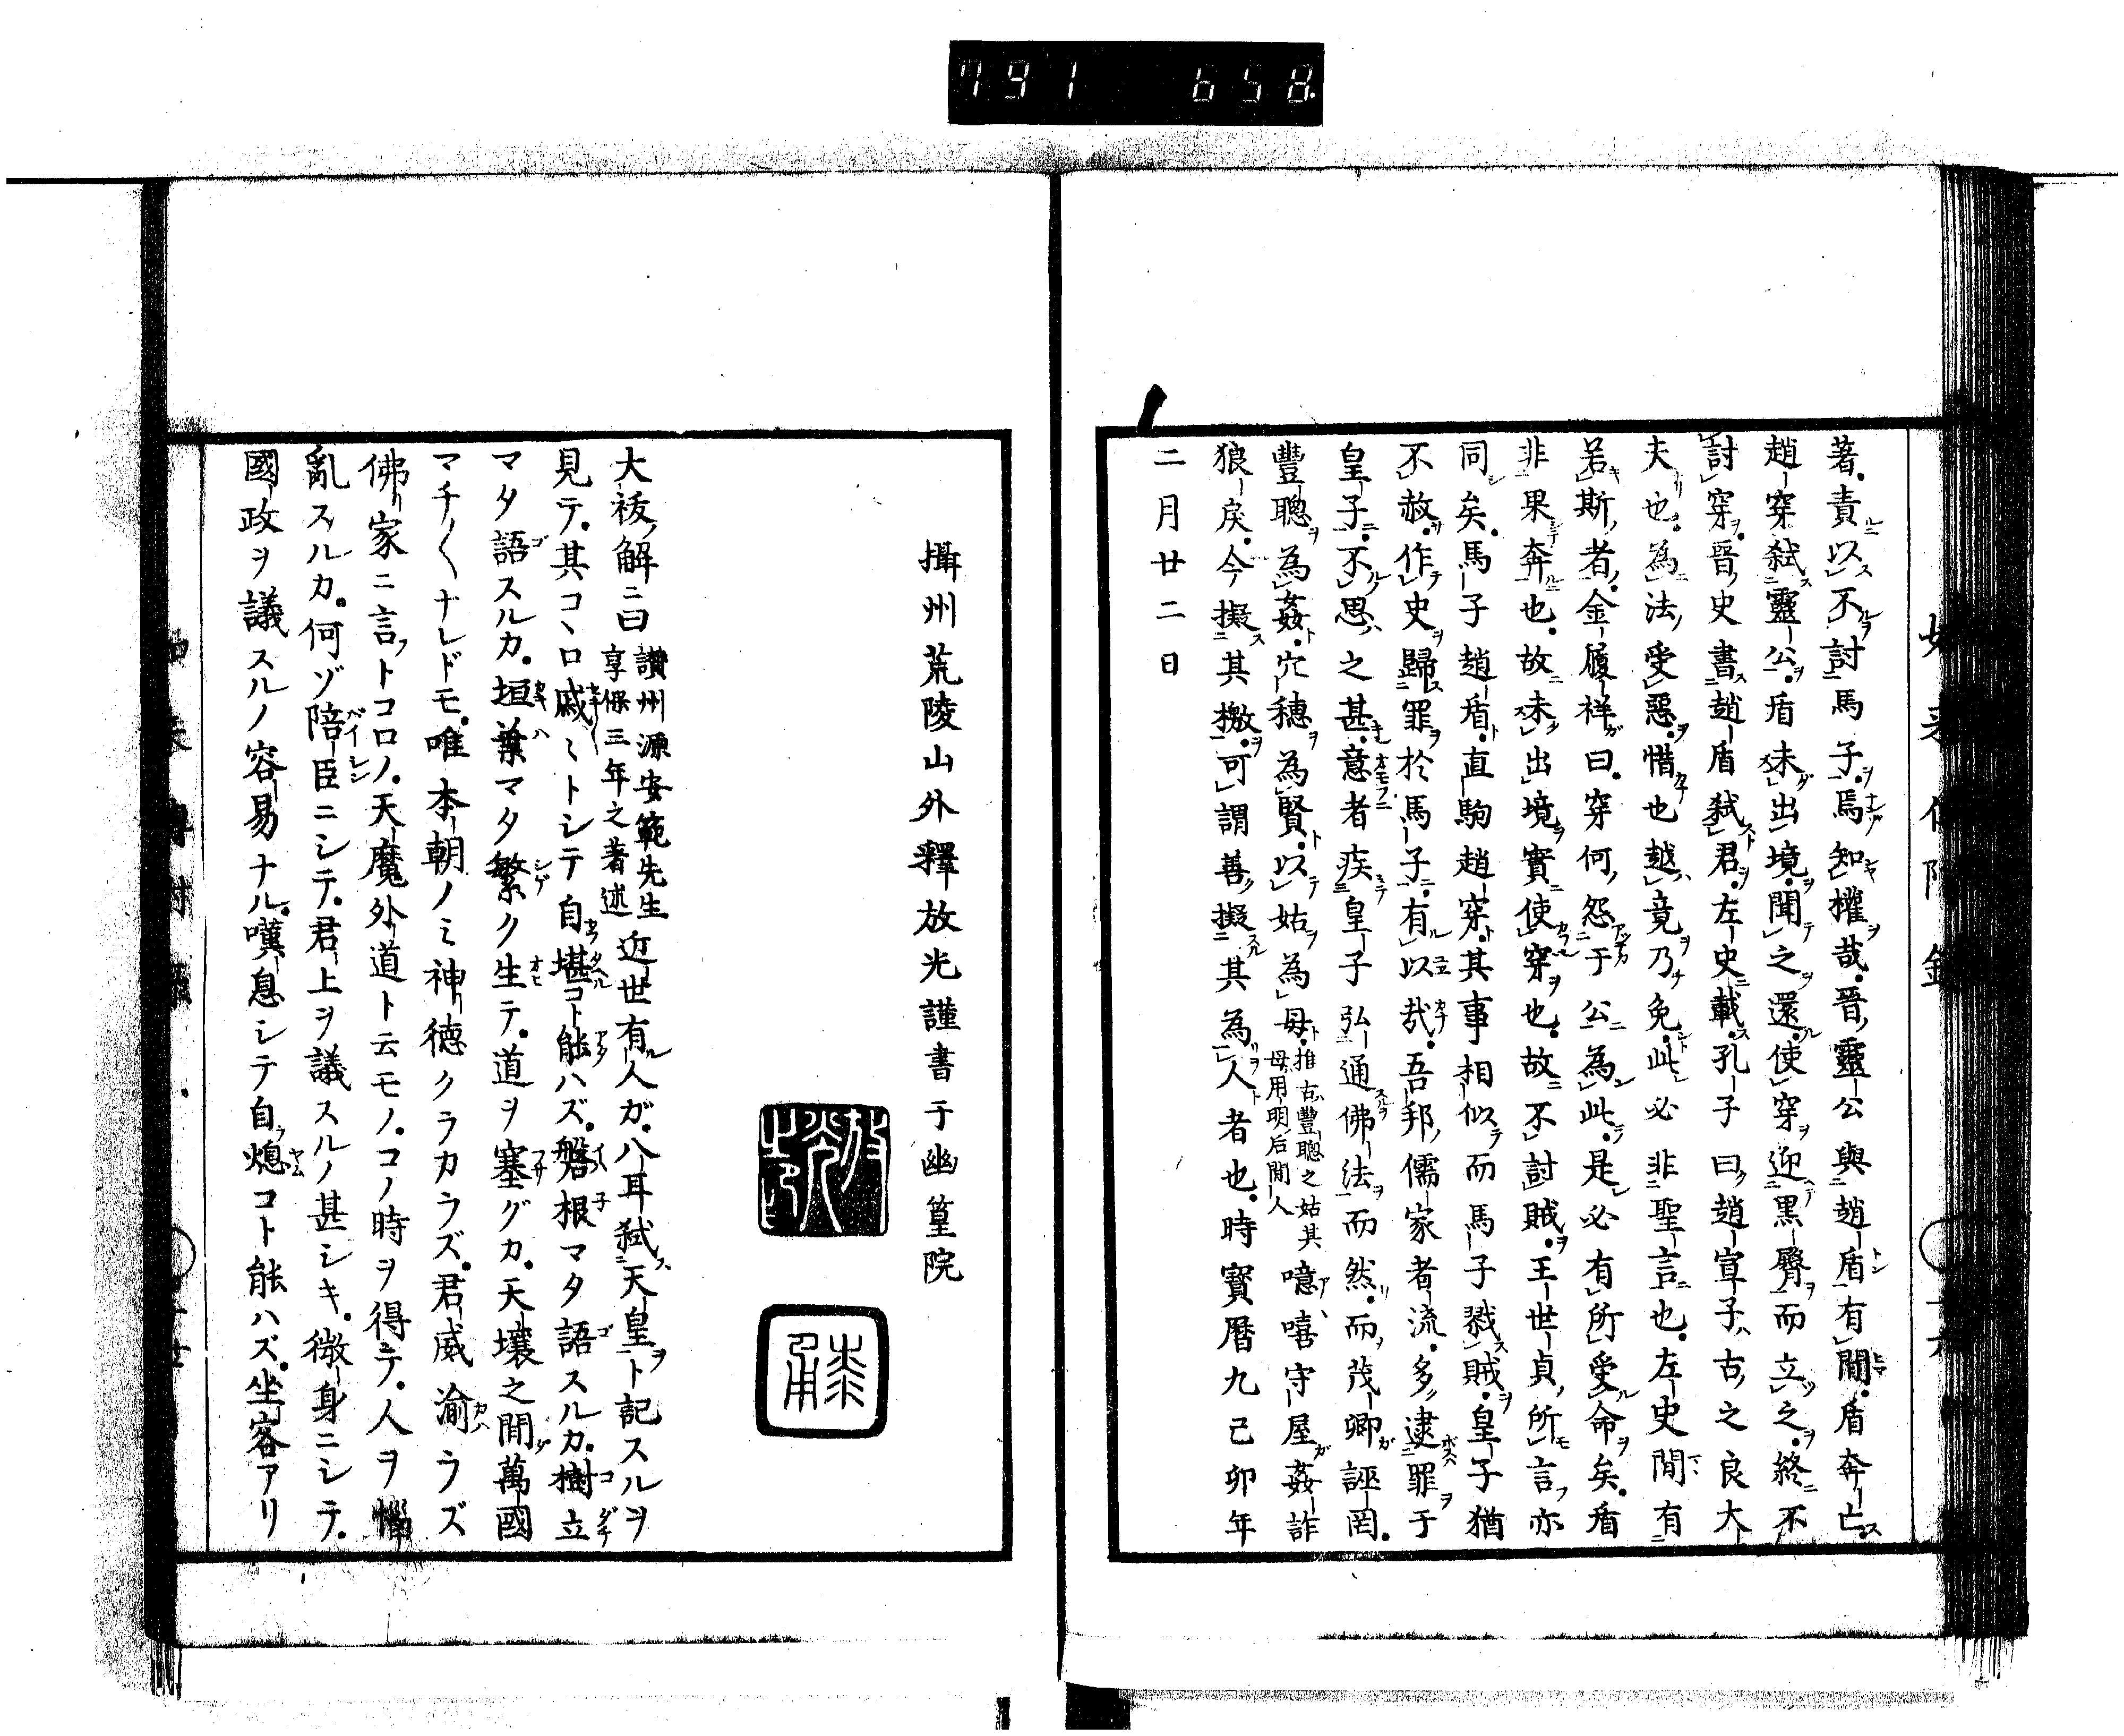 791 658
著責以不討馬子焉知權哉晉靈公與趙盾有間盾奔亡
趙穿弒靈公盾未出境聞之還使穿迎黑臀而立之終不
討穿晉史書趙盾弒君左史載孔子曰趙宣子古之良大
夫也為法受惡惜也越竟乃免此必非聖言也左史間有
若斯者金履祥曰穿何怨于公為此是必有所受命矣盾
非果奔也故未出境實使穿也故不討賊王世貞所言亦
同矣馬子趙盾直駒趙穿其事相似而馬子戮賊皇子猶
不赦作史歸罪於馬子有以哉吾邦儒家者流多逮罪于
皇子不思之甚意者疾皇子弘通佛法而然而茂卿誣罔
豐聰為姦穴穗為賢以姑為母推古豐聰之姑其母用明后間人噫嘻守屋姦詐
狼戾今擬其檄可謂善擬其為人者也時寶曆九己卯年
二月廿二日
攝州荒陵山外釋放光謹書于幽篁院
大祓ノ解ニ曰讚州源安範先生享保三年之著述近世有人ガ八耳弒天皇ト記スルヲ
見テ其コヽロ戚ヽトシテ自堪コト能ハズ磐根マタ語スルカ樹立
マタ語スルカ垣葉マタ繁ク生テ道ヲ塞グカ天壤之間萬國
マチ〱ナレドモ唯本朝ノミ神德クラカラズ君威渝ラズ
佛家ニ言トコロノ天魔外道ト云モノコノ時ヲ得テ人ヲ惱
亂スルカ何ゾ陪臣ニシテ君上ヲ議スルノ甚シキ微身ニシテ
國政ヲ議スルノ容易ナル嘆息シテ自熄コト能ハズ坐客アリ